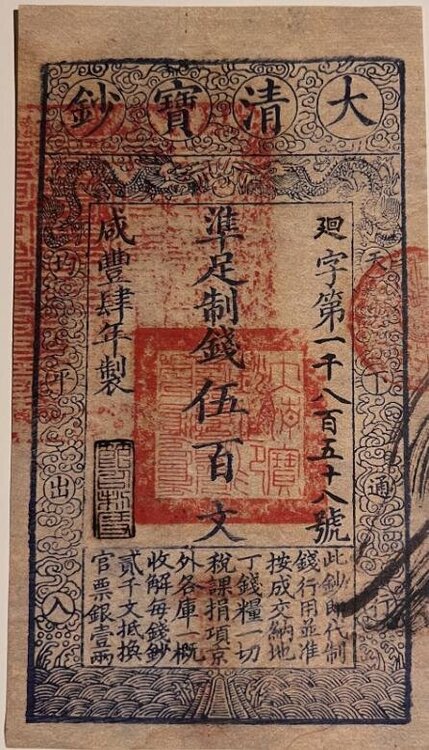 大清寶鈔
天下通行
廻字第一千八百五十八號
準足制錢伍百文
咸豐肆年製
均平出入
此鈔即代制
錢行用並准
按成交納地
丁錢糧一切
稅課捐項京
外各庫一概
收解每錢鈔
貳千文抵換
官票銀壹兩